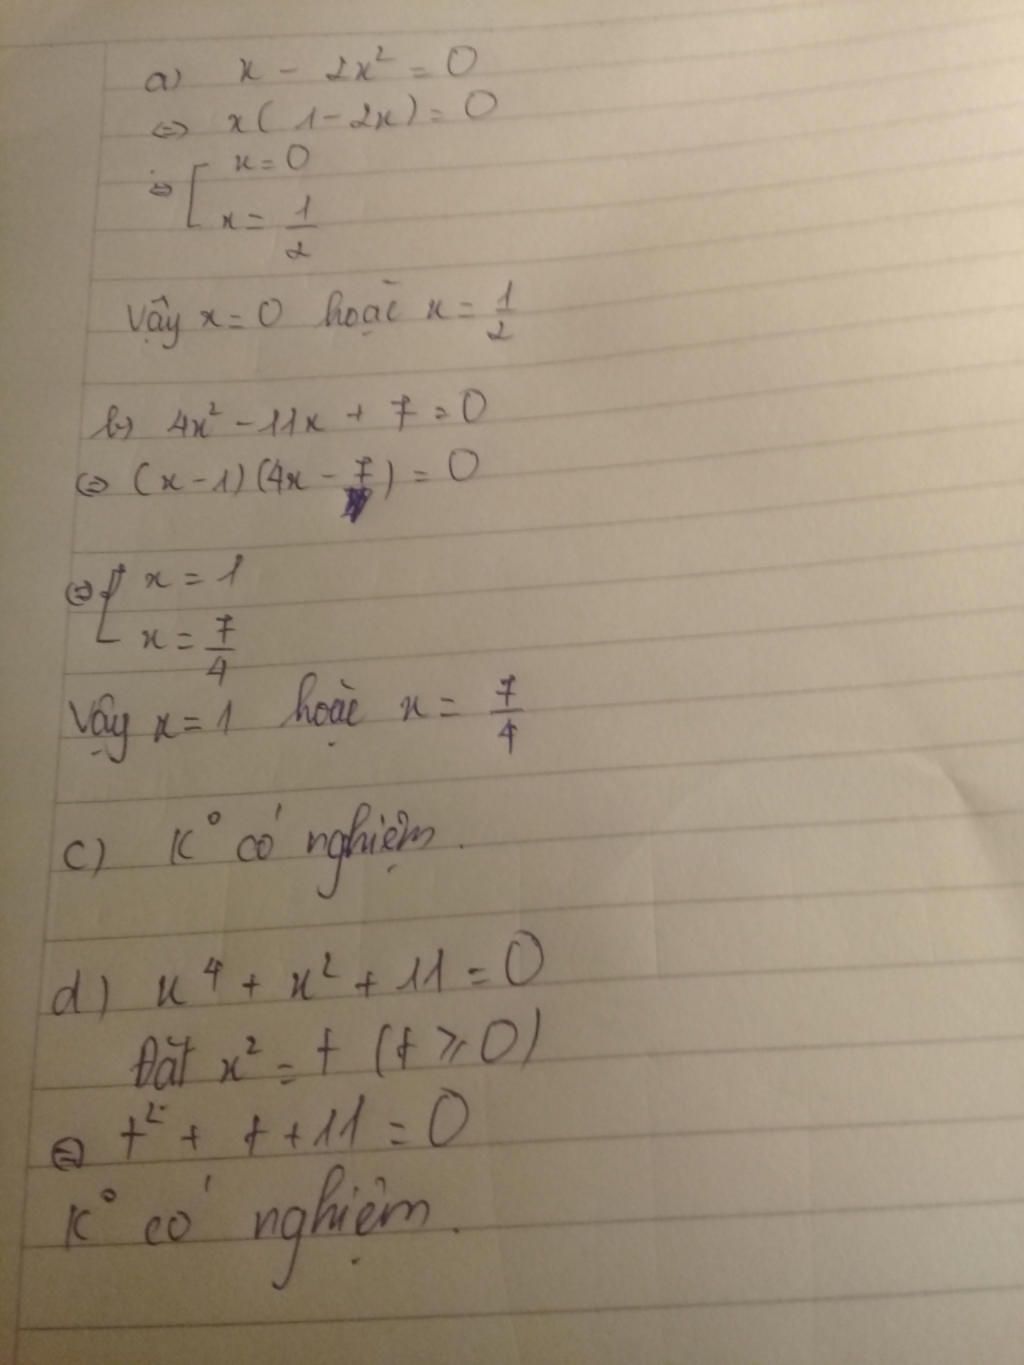 a) x - 2x² = 0
⇔ x(1-2x) = 0
⇔ [ x = 0
x = 1/2
Vậy x = 0 hoặc x = 1/2
b) 4x² - 11x + 7 = 0
⇔ (x-1)(4x-7) = 0
⇔ [ x = 1
x = 7/4
Vậy x = 1 hoặc x = 7/4
c) K° có nghiệm.
d) x⁴ + x² + 11 = 0
Đặt x² = t (t ⩾ 0)
⇔ t² + t + 11 = 0
K° có nghiệm.